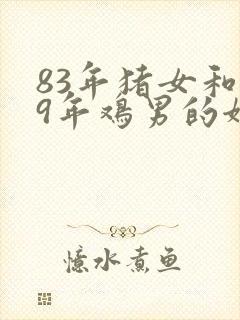 83年猪女和
9年鸡男的
憶水煮鱼